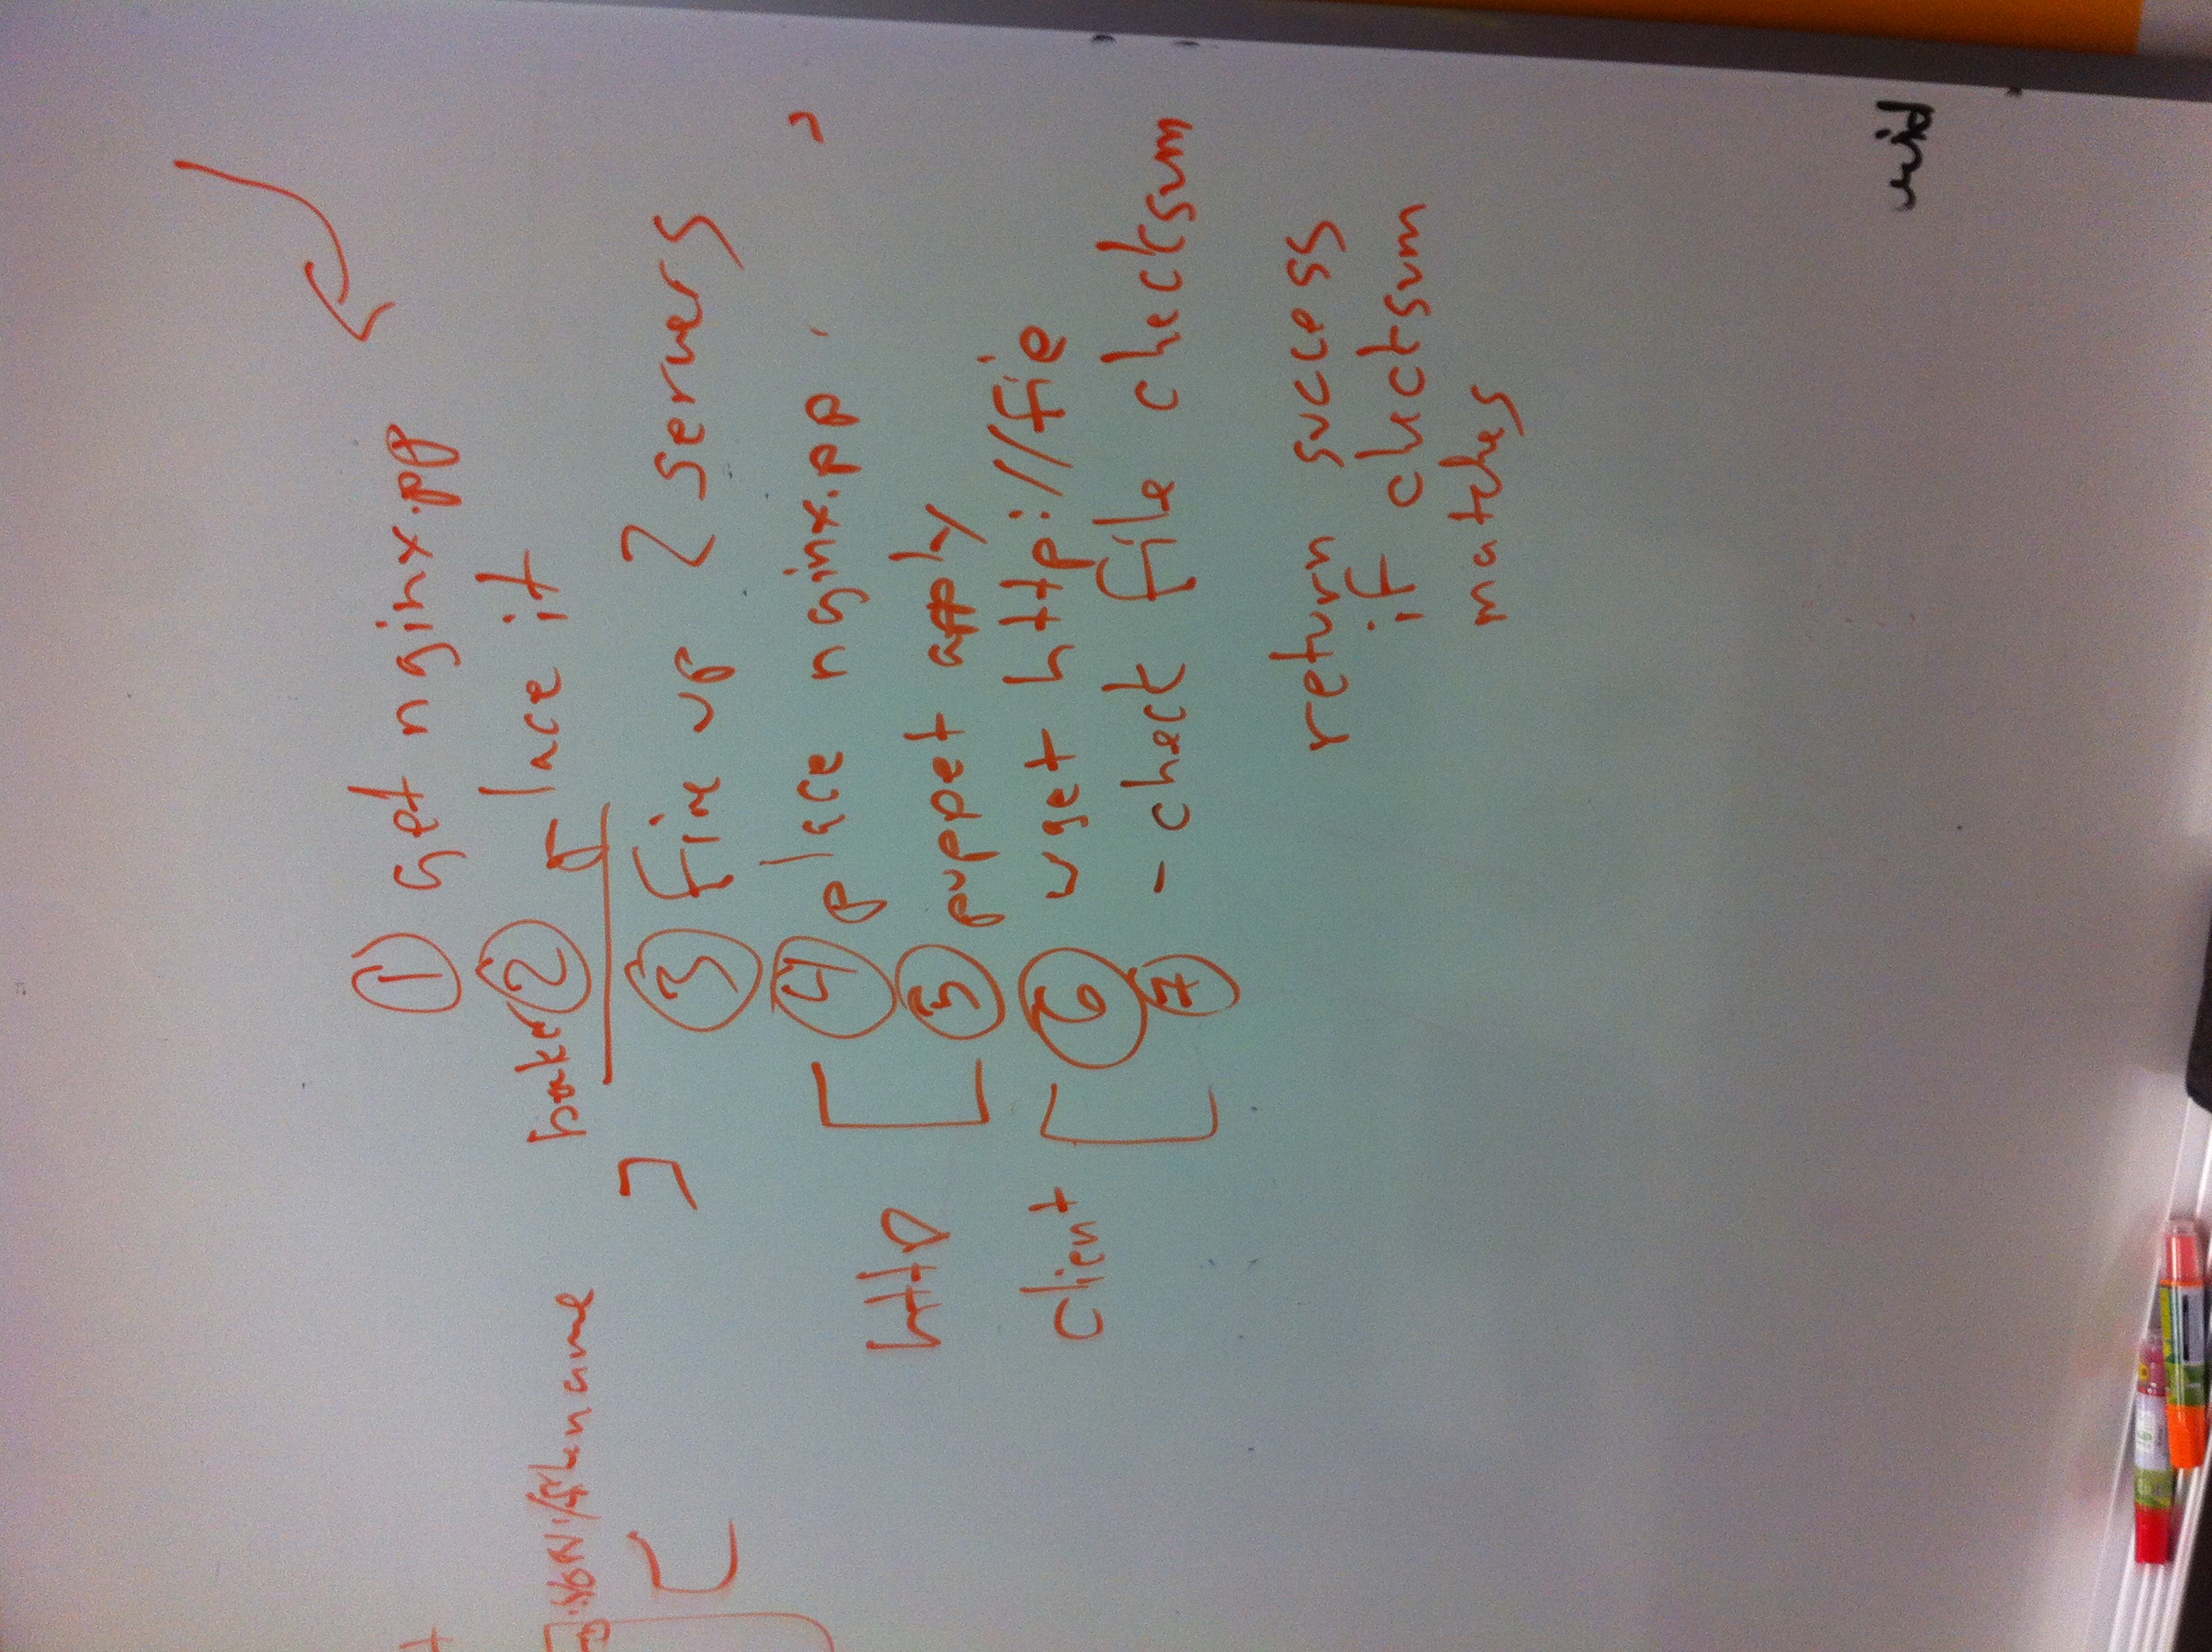 ① get nginx.pp
baker ② place it
③ fire up 2 servers
④ place nginx.pp
http
⑤ puppet apply
client
⑥ wget http://file
⑦ - check file checksum
return success
if checksum
matches